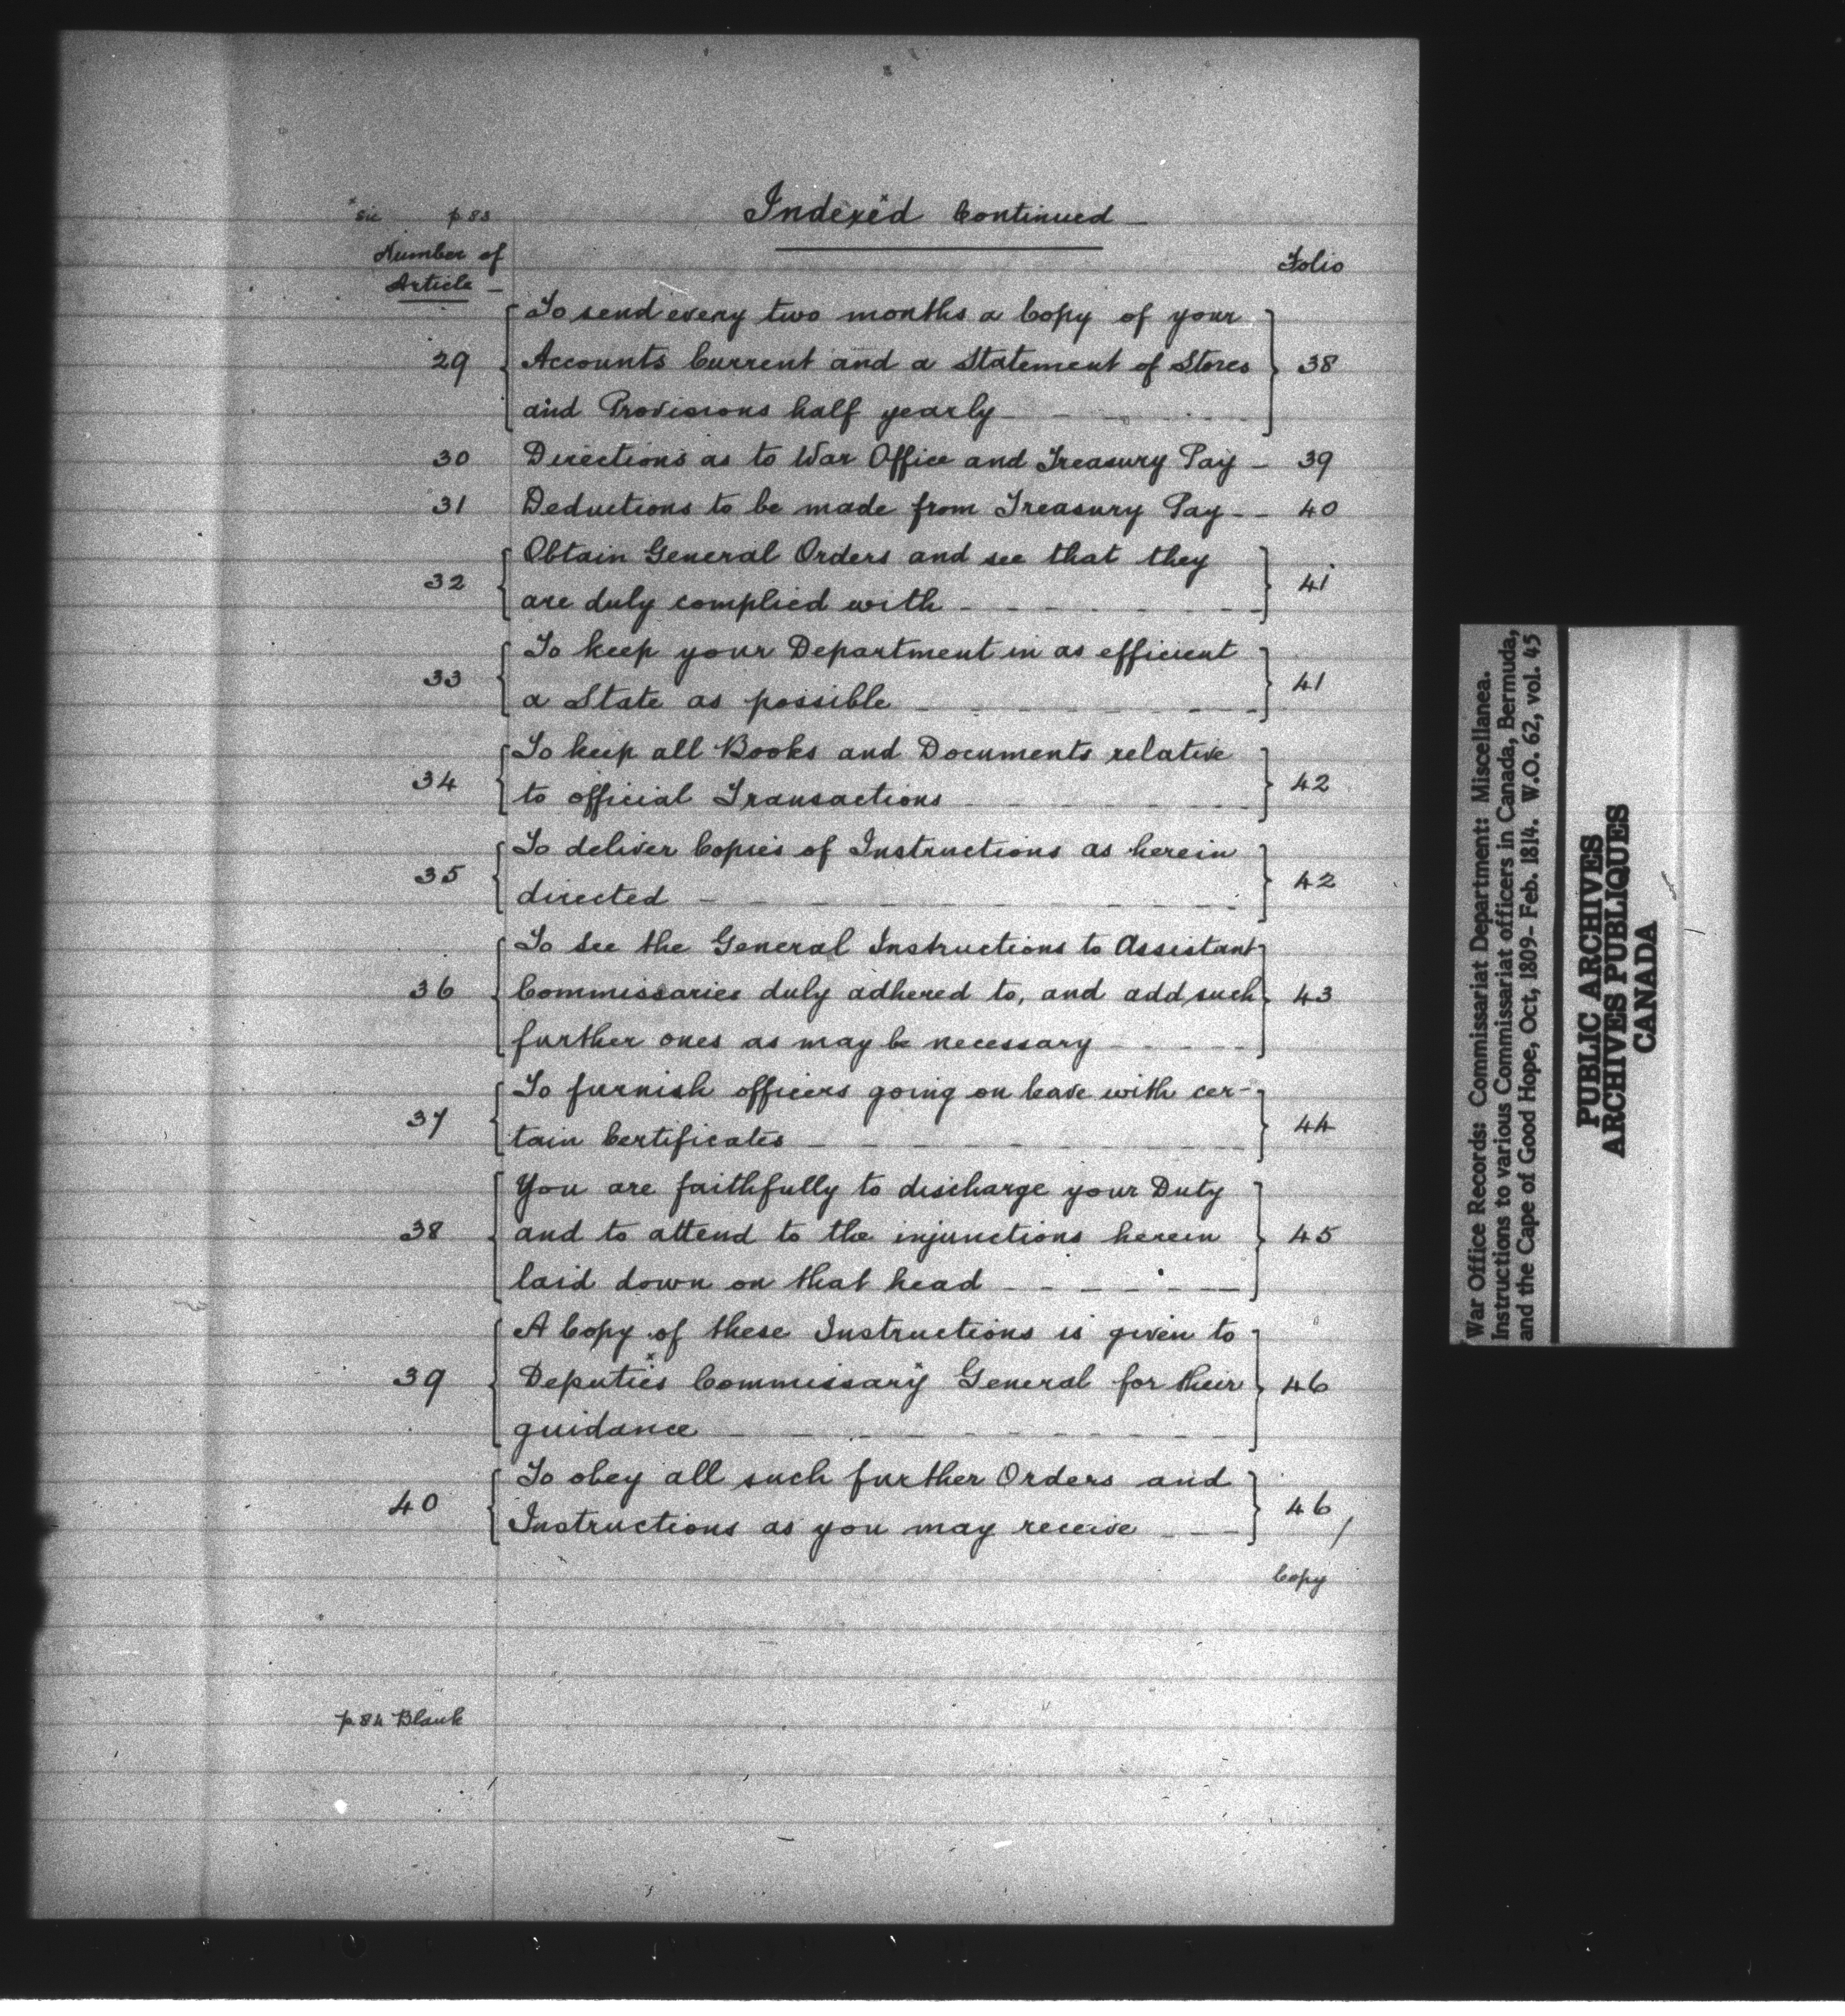 * sic p 83 Indexed Continued
Number of Article Folio
To send every two months a Copy of your
29 Accounts Current and a Statement of Stores 38
and Provisions half yearly
30 Directions as to War Office and Treasury Pay 39
31 Deductions to be made from Treasury Pay 40
Obtain General Orders and see that they
32 are duly complied with 41
To keep your Department in as efficient
33 a State as possible 41
To keep all Books and Documents relative
34 to official Transactions 42
To deliver Copies of Instructions as herein
35 directed 42
To see the General Instructions to Assistant
36 Commissaries duly adhered to, and add such 43
further ones as may be necessary
To furnish officers going on leave with cer-
37 tain Certificates 44
You are faithfully to discharge your Duty
38 and to attend to the injunctions herein 45
laid down on that head
A Copy of these Instructions is given to
39 Deputies Commissary General for their 46
guidance
To obey all such further Orders and
40 Instructions as you may receive 46
Copy
p. 84 Blank
War Office Records: Commissariat Department: Miscellanea.
Instructions to various Commissariat officers in Canada, Bermuda,
and the Cape of Good Hope, Oct, 1809- Feb. 1814. W.O. 62, vol. 45
PUBLIC ARCHIVES
ARCHIVES PUBLIQUES
CANADA